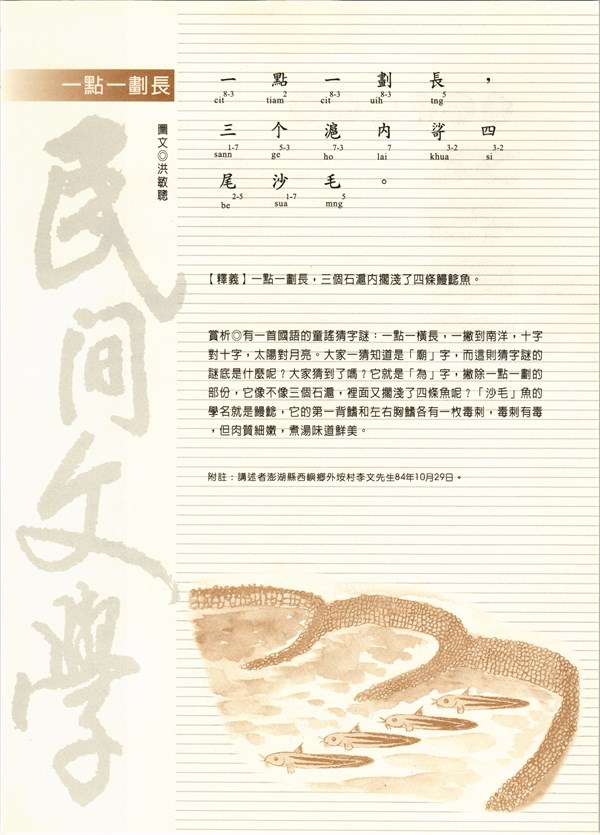 一點一劃長
圖文◎洪敏聰
民间文學
一點一劃長，
cit8-3 tiam2 cit8-3 uih8-3 tng5
三个滬內䈄四
sann1-7 ge5-3 ho7-3 lai7 khua3-2 si3-2
尾沙毛。
be2-5 sua1-7 mng5
【釋義】一點一劃長，三個石滬內擱淺了四條鰻鯰魚。
賞析◎有一首國語的童謠猜字謎：一點一橫長，一撇到南洋，十字
對十字，太陽對月亮。大家一猜知道是「廟」字，而這則猜字謎的
謎底是什麼呢？大家猜到了嗎？它就是「為」字，撇除一點一劃的
部份，它像不像三個石滬，裡面又擱淺了四條魚呢？「沙毛」魚的
學名就是鰻鯰，它的第一背鰭和左右胸鰭各有一枚毒刺，毒刺有毒
，但肉質細嫩，煮湯味道鮮美。
附註：講述者澎湖縣西嶼鄉外垵村李文先生84年10月29日。